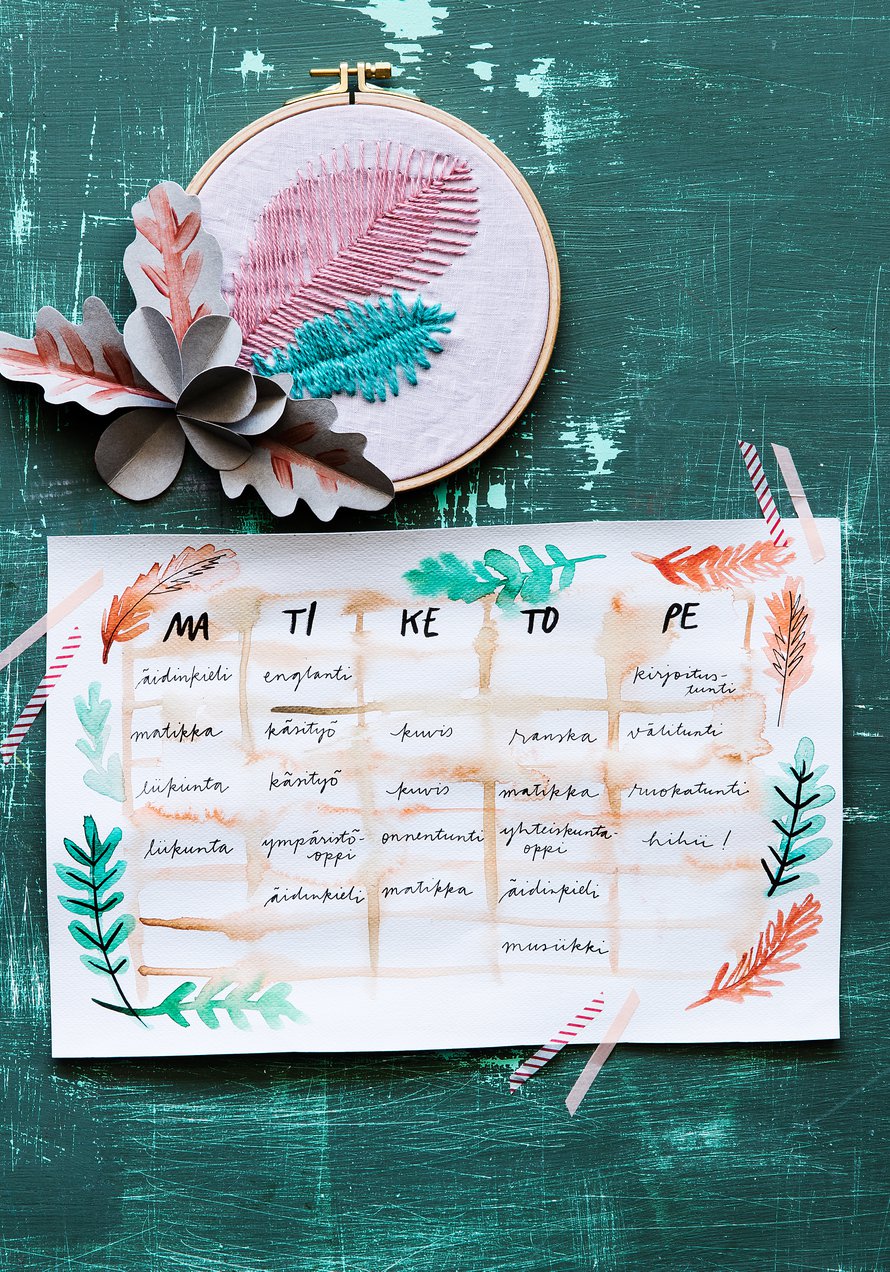 MA TI KE TO PE
äidinkieli englanti kirjoitus-
tunti
matikka käsityö kuvis ranska välitunti
liikunta käsityö kuvis matikka ruokatunti
liikunta ympäristö- onnentunti yhteiskunta- hihii !
oppi oppi
äidinkieli matikka äidinkieli
musiikki